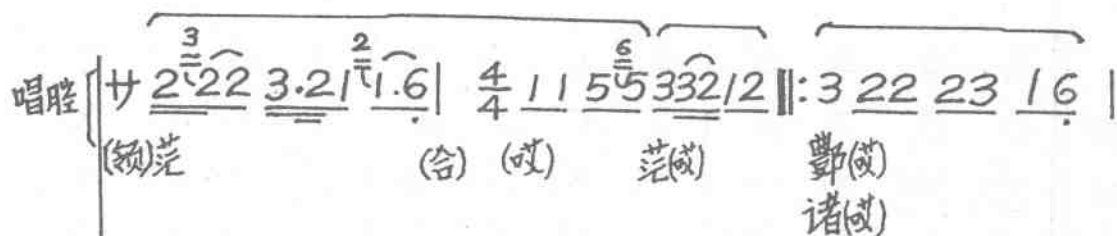 3 2 6
唱腔 サ 2 22 3.21 1.6 | 4/4 11 5 5 332 12 ‖: 3 22 23 16 |
(领)茫 (合) (哎) 茫(哎) 酆(哎)
诸(哎)